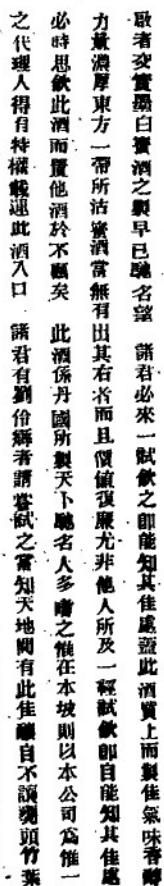 啟者交實墨白蜜酒之製早已馳名望　諸君必來一試飲之卽能知其佳處蓋此酒質上而製佳氣味香
力氣濃厚東方一帶所沽蜜酒當無有出其右者而且價値復廉尤非他人所及一經試飲卽自能知其佳處
必時思飲此酒而置他酒於不矚矣　此酒係丹國所製天下馳名人多嗜之惟在本坡則以本公司爲惟一
之代理人得有特權載運此酒入口　諸君有劉伶癖者請嘗試之當知天地間有此佳釀自不讓甕頭竹葉